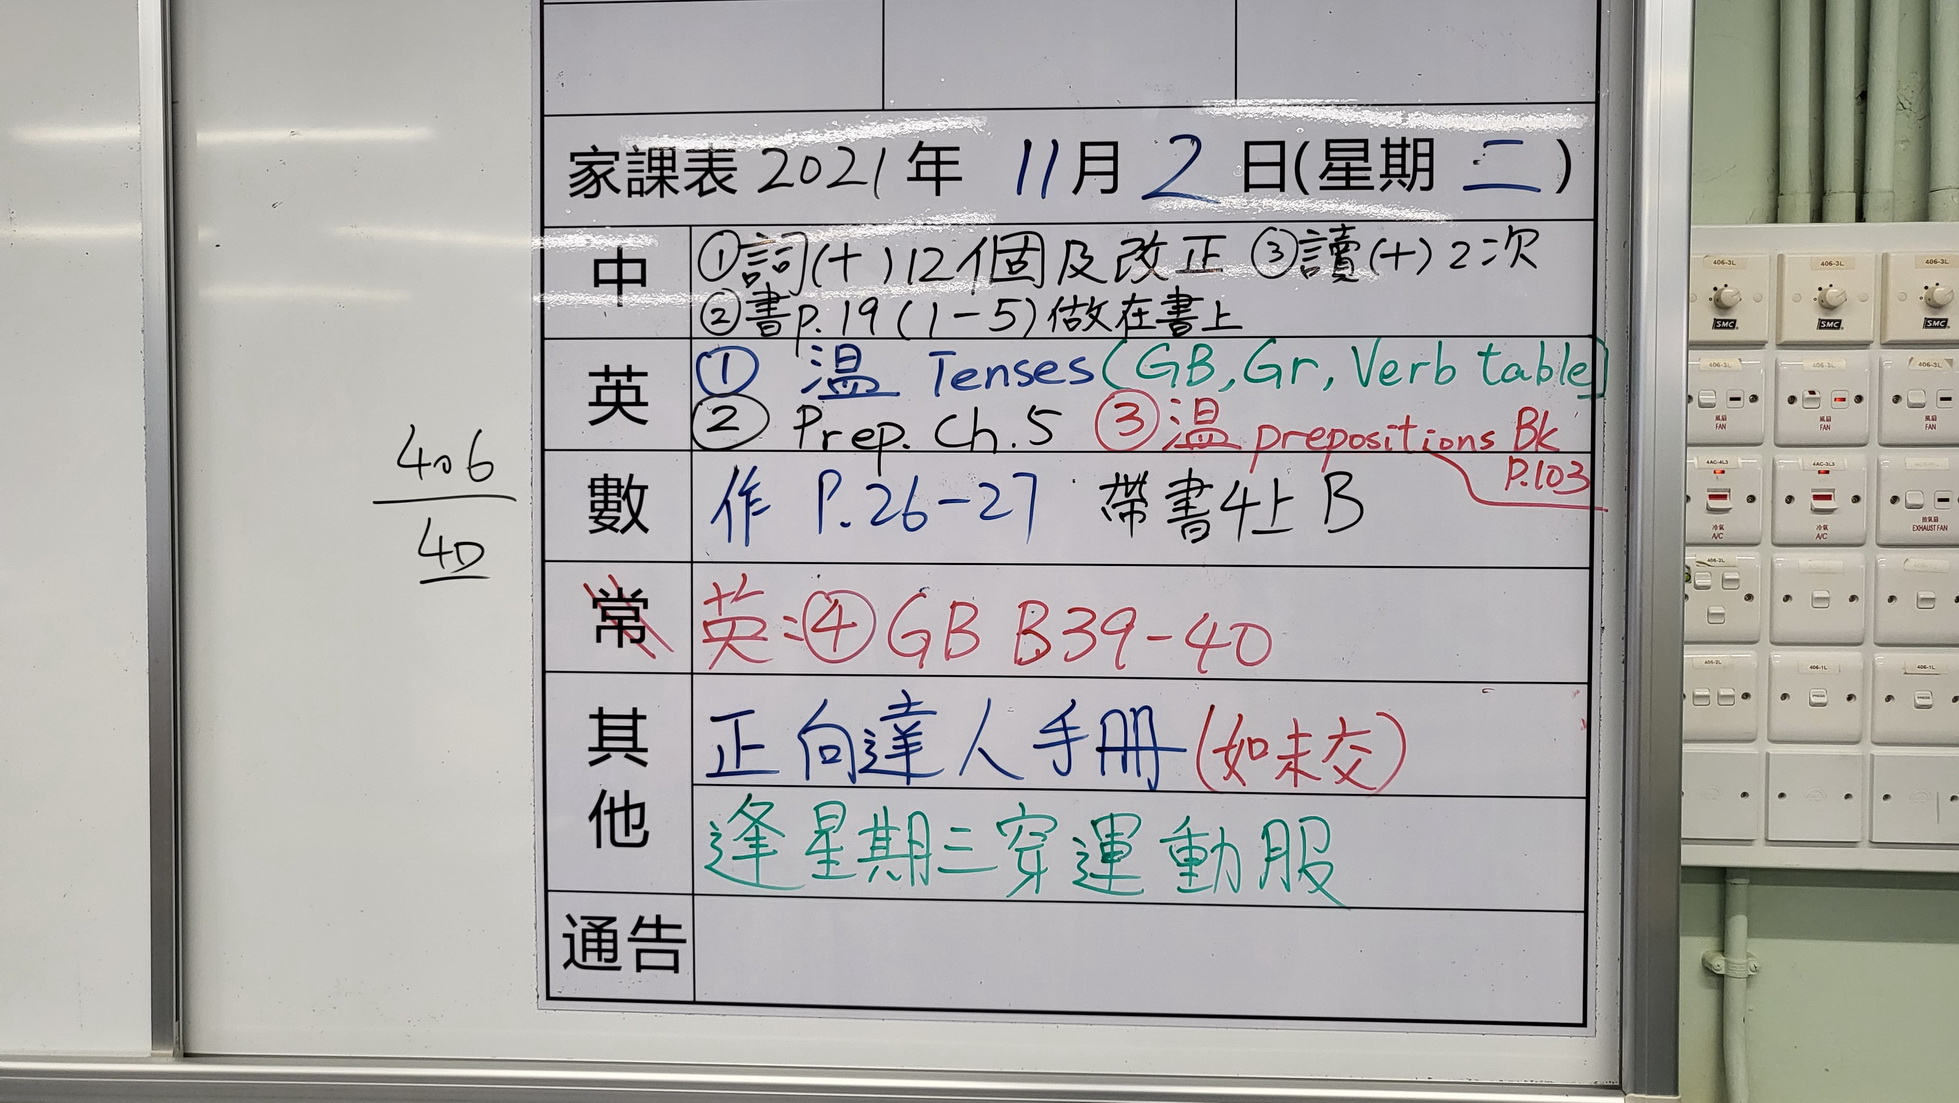 家課表 2021年 11月2日(星期二)
中
①詞(十)12個及改正 ③讀(十)2次
②書p.19(1-5)做在書上
英
① 温 Tenses(GB,Gr,Verb table)
② Prep. Ch.5 ③温 prepositions Bk
P.103
數
作 P.26-27 帶書4上B
406
40
常
英:④GB B39-40
其他
正向達人手冊(如未交)
逢星期三穿運動服
通告
406-3L 406-3L 406-3L
SMC SMC SMC
406-3L 406-3L 406-3L
風扇 風扇 風扇
FAN FAN FAN
4AC-4L3 4AC-3L3
冷氣 冷氣 抽氣扇
A/C A/C EXHAUST FAN
406-2L
406-2L 406-1L 406-1L
PRESS PRESS